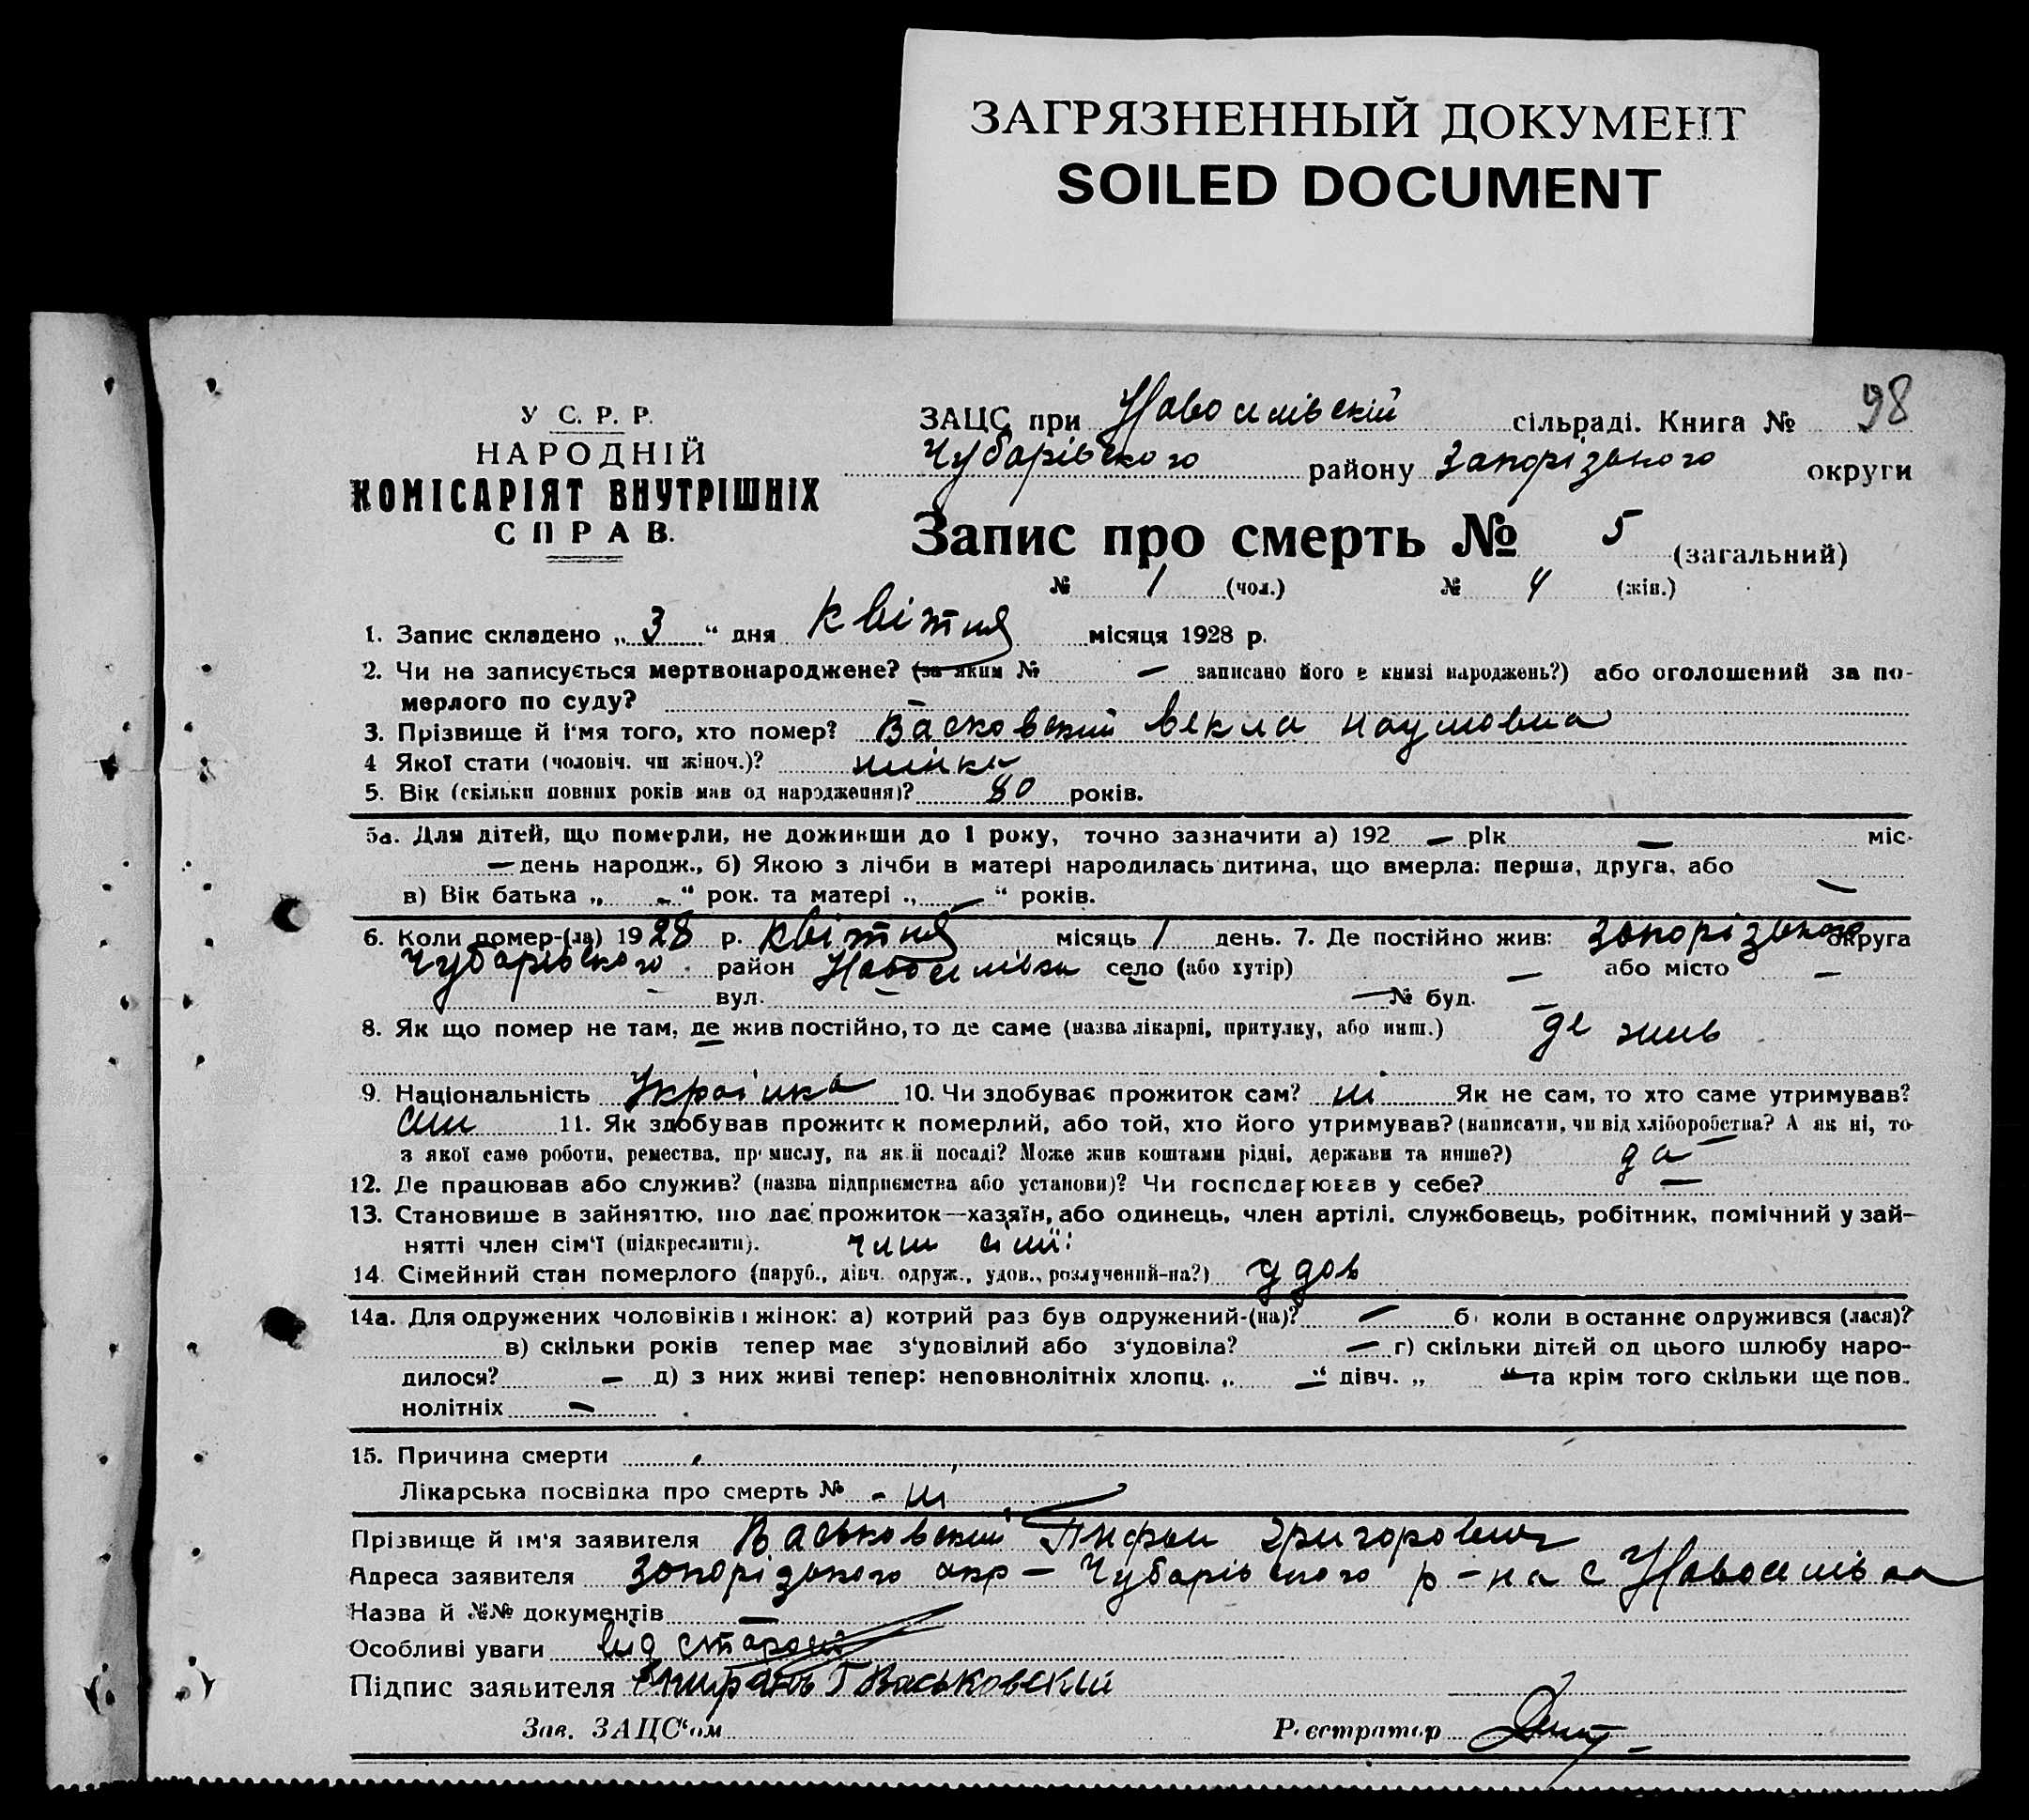 ЗАГРЯЗНЕННЫЙ ДОКУМЕНТ
SOILED DOCUMENT
98
У С. Р. Р.
НАРОДНІЙ
КОМІСАРІЯТ ВНУТРІШНІХ
СПРАВ.
ЗАЦС при Новоселівскій сільраді. Книга №
Чубарівского району Запорізького округи
Запис про смерть № 5 (загальний)
№ 1 (чол.) № 4 (жін.)
1. Запис складено „ 3 “ дня квітня місяця 1928 р.
2. Чи не записується мертвонароджене? (за яким № — записано його в книзі народжень?) або оголошений за по-
мерлого по суду?
3. Прізвище й ім'я того, хто помер? Васковский векла наумовна
4 Якої стати (чоловіч. чи жіноч.)? жінка
5. Вік (скільки повних років мав од народження)? 80 років.
5а. Для дітей, що померли, не доживши до 1 року, точно зазначити а) 192 — рік — міс-
— день народж., б) Якою з лічби в матері народилась дитина, що вмерла: перша, друга, або —
в) Вік батька „ - “ рок. та матері „ — “ років.
6. Коли помер-(ла) 1928 р. квітня місяць 1 день. 7. Де постійно жив: Запорізького округа
Чубарівского район Новоселівка село (або хутір) — або місто —
вул. — № буд. —
8. Як що помер не там, де жив постійно, то де саме (назва лікарні, притулку, або инш.) де жив
9. Національність Украінка 10. Чи здобуває прожиток сам? ні Як не сам, то хто саме утримував?
син 11. Як здобував прожиток померлий, або той, хто його утримував? (написати, чи від хліборобства? А як ні, то
з якої саме роботи, ремества, промислу, на якій посаді? Може жив коштами рідні, держави та инше?) да
12. Де працював або служив? (назва підприємства або установи)? Чи господарював у себе? —
13. Становище в зайняттю, що дає прожиток—хазяїн, або одинець, член артілі, службовець, робітник, помічний у зай-
нятті член сім'ї (підкреслити). член сімї
14. Сімейний стан померлого (паруб., дівч. одруж., удов., розлучений-на?) удов
14а. Для одружених чоловіків і жінок: а) котрий раз був одружений-(на)? — б) коли востаннє одружився (лася)?
в) скільки років тепер має з'удовілий або з'удовіла? — г) скільки дітей од цього шлюбу наро-
дилося? — д) з них живі тепер: неповнолітніх хлопц. „ — “ дівч. „ — “ та крім того скільки ще пов.
нолітніх —
15. Причина смерти
Лікарська посвідка про смерть № - ні
Прізвище й ім'я заявителя Васьковский Григорович
Адреса заявителя Запорізького окр — Чубарівского р-на с Новоселівка
Назва й №№ документів —
Особливі уваги від старости
Підпис заявителя Г Васьковскій
Зав. ЗАЦС'ом
Реєстратор